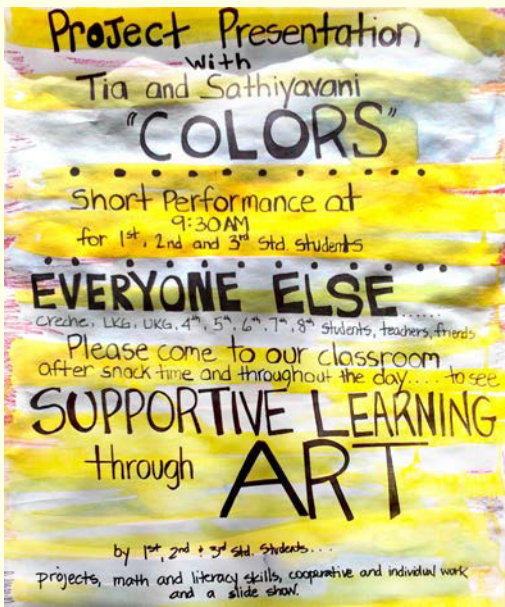 Project Presentation
with
Tia and Sathiyavani
"COLORS"
Short Performance at
9:30AM
for 1st, 2nd and 3rd Std. students
EVERYONE ELSE......
Creche, LKG, UKG, 4th, 5th, 6th, 7th, 8th students, teachers, friends
Please come to our classroom
after snack time and throughout the day.... to see
SUPPORTIVE LEARNING
through ART
by 1st, 2nd + 3rd Std. Students...
projects, math and literacy skills, cooperative and individual work
and a slide show.